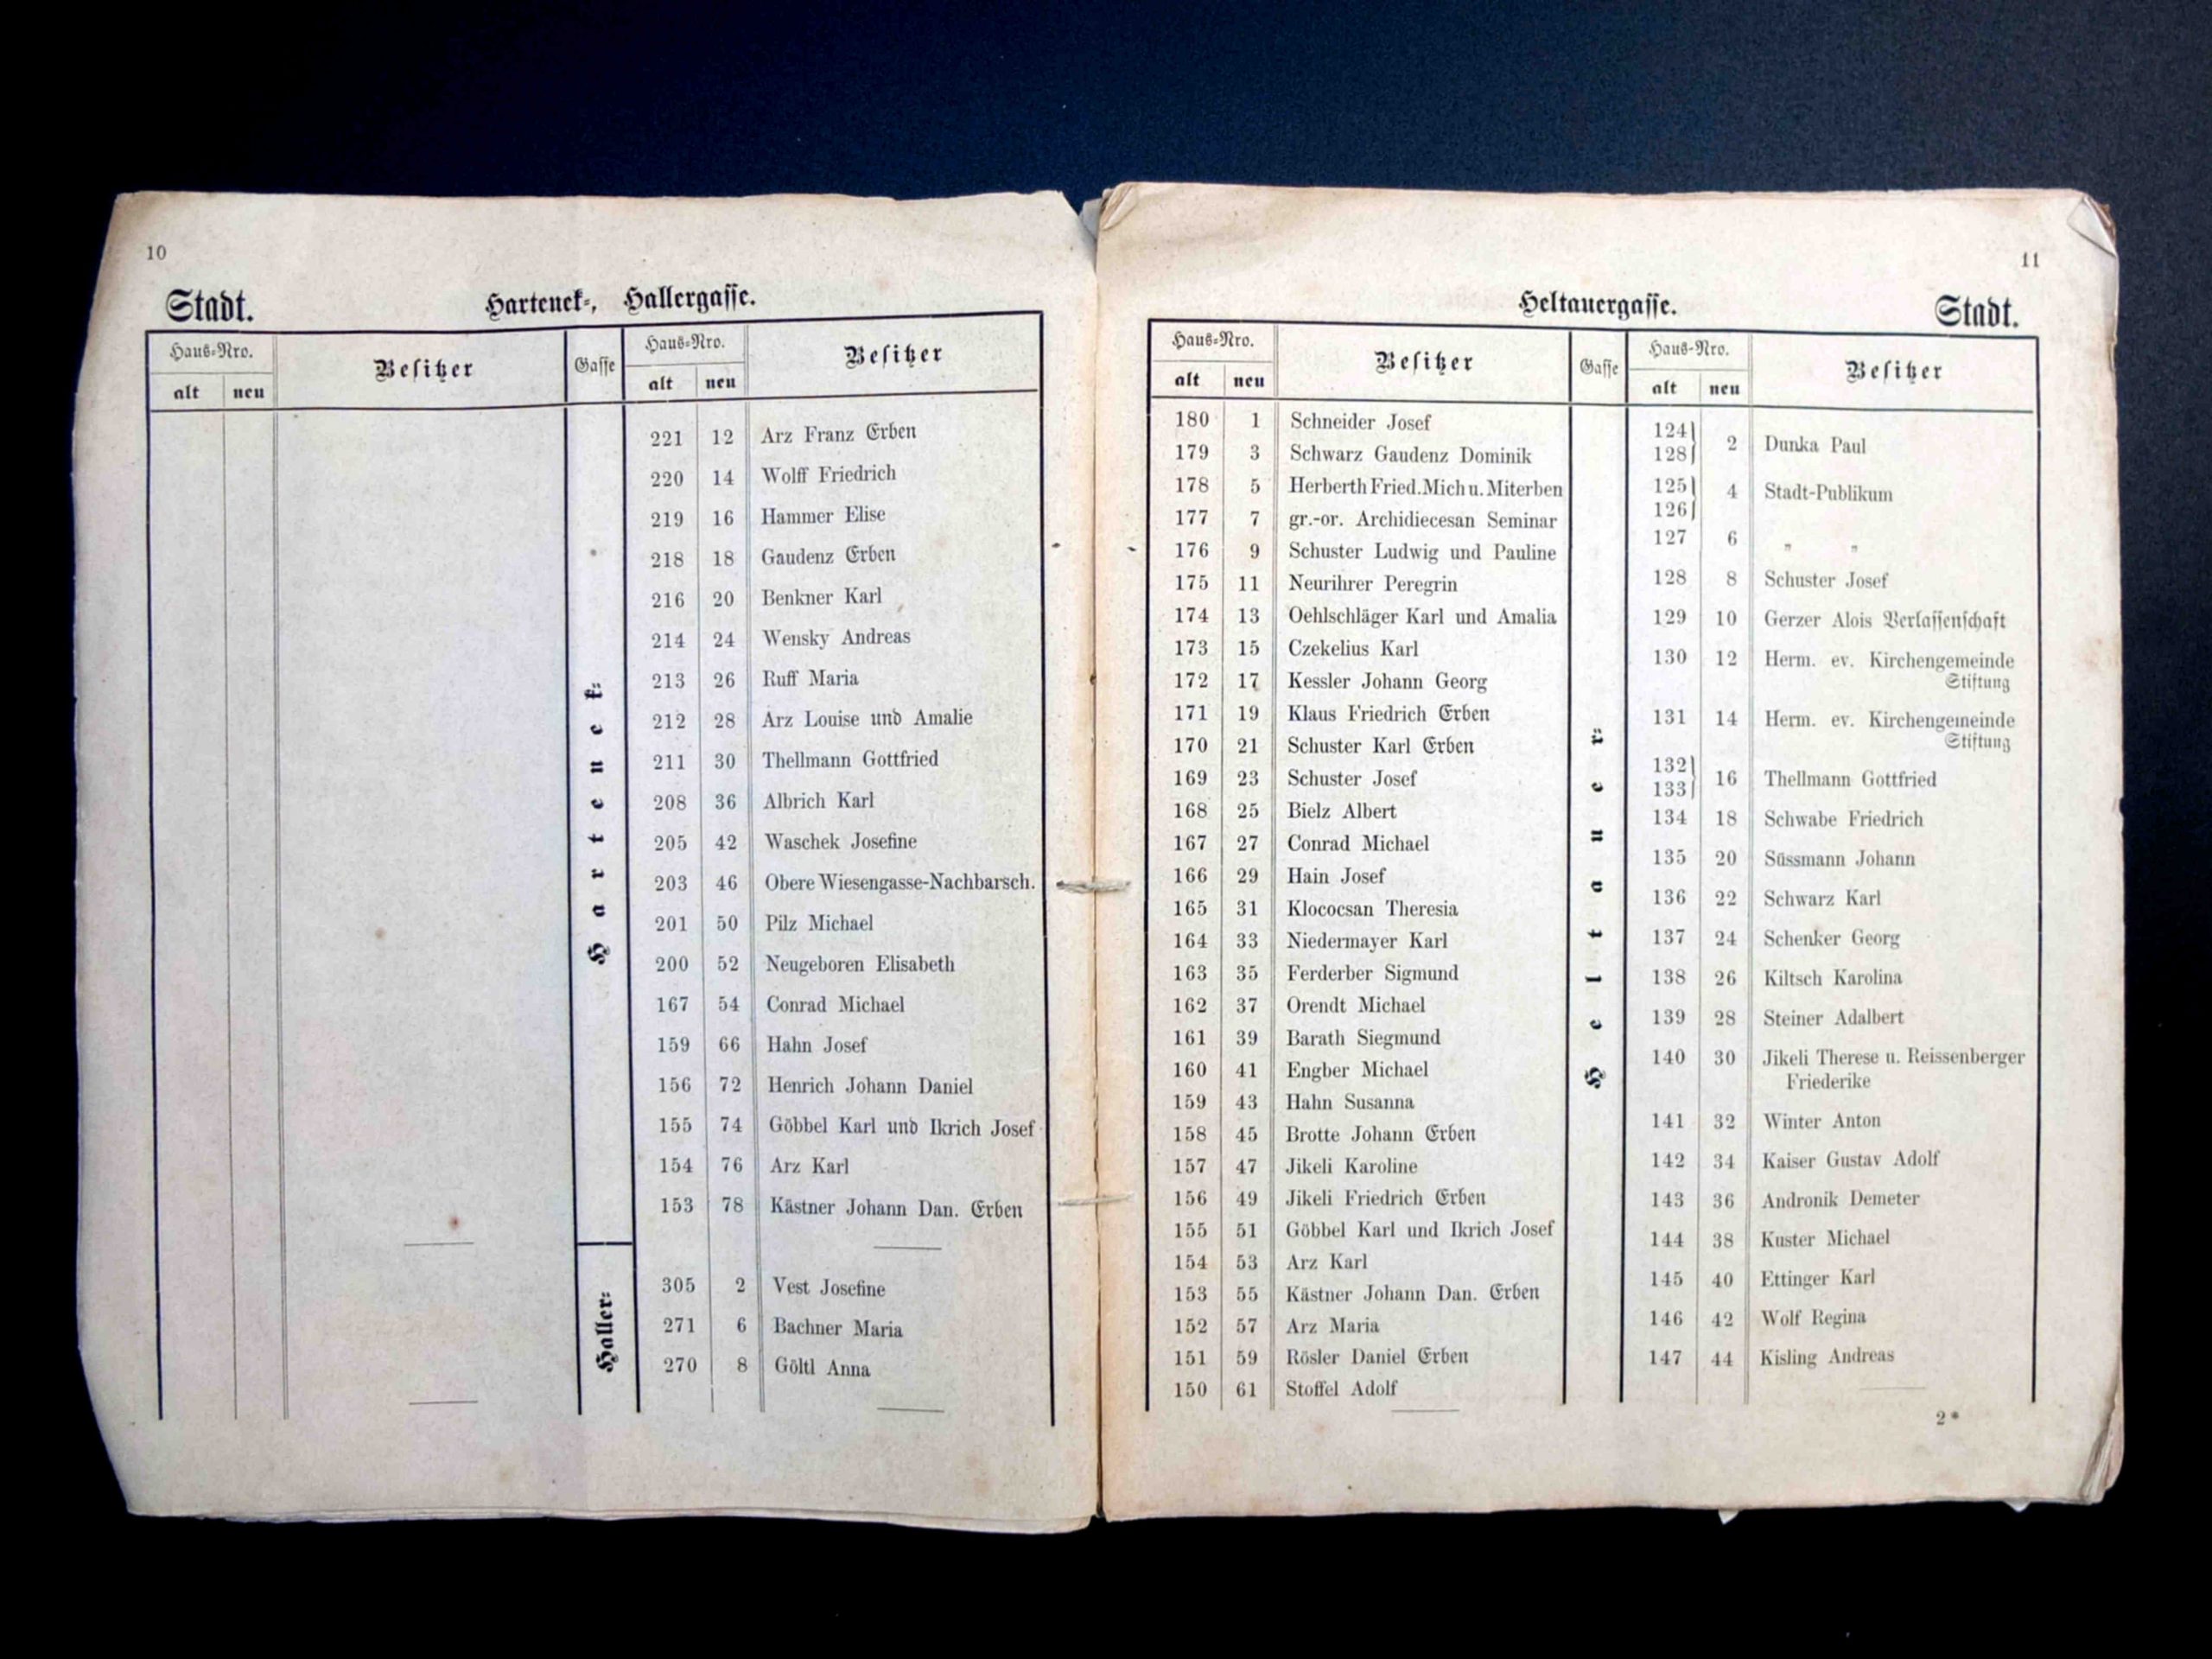 10
Stadt.
Harteneck-, Hallergasse.
Haus-Nro. Besitzer Gasse Haus-Nro. Besitzer
alt neu alt neu
Harteneck-
221 12 Arz Franz Erben
220 14 Wolff Friedrich
219 16 Hammer Elise
218 18 Gaudenz Erben
216 20 Benkner Karl
214 24 Wensky Andreas
213 26 Ruff Maria
212 28 Arz Louise und Amalie
211 30 Thellmann Gottfried
208 36 Albrich Karl
205 42 Waschek Josefine
203 46 Obere Wiesengasse-Nachbarsch.
201 50 Pilz Michael
200 52 Neugeboren Elisabeth
167 54 Conrad Michael
159 66 Hahn Josef
156 72 Henrich Johann Daniel
155 74 Göbbel Karl und Ikrich Josef
154 76 Arz Karl
153 78 Kästner Johann Dan. Erben
Haller-
305 2 Vest Josefine
271 6 Bachner Maria
270 8 Göltl Anna
11
Heltauergasse.
Stadt.
Haus-Nro. Besitzer Gasse Haus-Nro. Besitzer
alt neu alt neu
180 1 Schneider Josef
179 3 Schwarz Gaudenz Dominik
178 5 Herberth Fried. Mich u. Miterben
177 7 gr.-or. Archidiecesan Seminar
176 9 Schuster Ludwig und Pauline
175 11 Neurihrer Peregrin
174 13 Oehlschläger Karl und Amalia
173 15 Czekelius Karl
172 17 Kessler Johann Georg
171 19 Klaus Friedrich Erben
170 21 Schuster Karl Erben
169 23 Schuster Josef
168 25 Bielz Albert
167 27 Conrad Michael
166 29 Hain Josef
165 31 Klococsan Theresia
164 33 Niedermayer Karl
163 35 Ferderber Sigmund
162 37 Orendt Michael
161 39 Barath Siegmund
160 41 Engber Michael
159 43 Hahn Susanna
158 45 Brotte Johann Erben
157 47 Jikeli Karoline
156 49 Jikeli Friedrich Erben
155 51 Göbbel Karl und Ikrich Josef
154 53 Arz Karl
153 55 Kästner Johann Dan. Erben
152 57 Arz Maria
151 59 Rösler Daniel Erben
150 61 Stoffel Adolf
Heltauer-
124
128 } 2 Dunka Paul
125
126 } 4 Stadt-Publikum
127 6 " "
128 8 Schuster Josef
129 10 Gerzer Alois Verlassenschaft
130 12 Herm. ev. Kirchengemeinde
Stiftung
131 14 Herm. ev. Kirchengemeinde
Stiftung
132
133 } 16 Thellmann Gottfried
134 18 Schwabe Friedrich
135 20 Süssmann Johann
136 22 Schwarz Karl
137 24 Schenker Georg
138 26 Kiltsch Karolina
139 28 Steiner Adalbert
140 30 Jikeli Therese u. Reissenberger
Friederike
141 32 Winter Anton
142 34 Kaiser Gustav Adolf
143 36 Andronik Demeter
144 38 Kuster Michael
145 40 Ettinger Karl
146 42 Wolf Regina
147 44 Kisling Andreas
2*